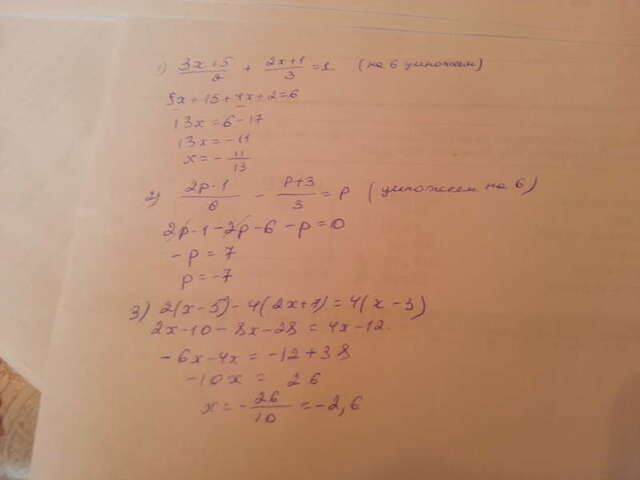 1) (3x+5)/2 + (2x+1)/3 = 1 (на 6 умножаем)
9x+15+4x+2=6
13x=6-17
13x=-11
x=-11/13
2) (2p-1)/6 - (p+3)/3 = p (умножаем на 6)
2p-1-2p-6-p=0
-p=7
p=-7
3) 2(x-5)-4(2x+7)=4(x-3)
2x-10-8x-28=4x-12
-6x-4x=-12+38
-10x=26
x=-26/10=-2,6